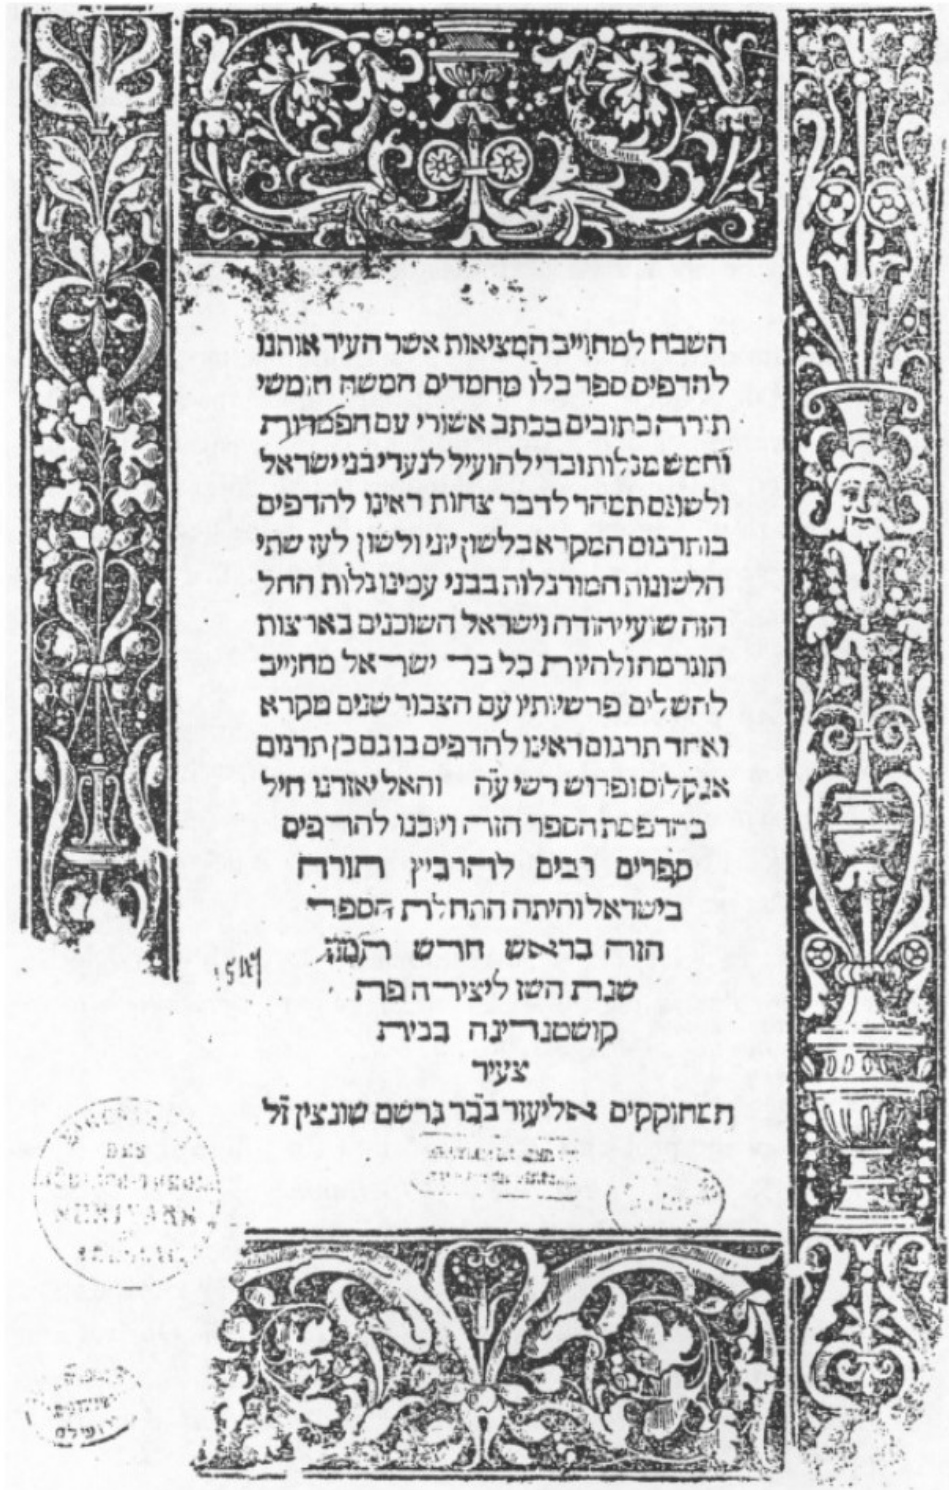 השבח למחוייב המציאות אשר העיר אותנו
להדפיס ספר כלו מחמדים חמשה חומשי
תורה כתובים בכתב אשורי עם הפטרות
וחמש מגלות וכדי להועיל לנערי בני ישראל
ולשונם תמהר לדבר צחות ראינו להדפיס
בו תרגום המקרא בלשון יוני ולשון לעז שתי
הלשונות המורגלות בבני עמינו גלות החל
הזה שועי יהודה וישראל השוכנים בארצות
תוגרמה ולהיות כל בר ישראל מחוייב
להשלים פרשיותיו עם הצבור שנים מקרא
ואחד תרגום ראינו להדפיס בו גם כן תרגום
אנקלוס ופרוש רשי ע״ה והאל יאזרנו חיל
בהדפסת הספר הזה ויזכנו להדפיס
ספרים רבים להרביץ תורה
בישראל והיתה התחלת הספר
הזה בראש חדש תמוז
שנת השז ליצירה פה
קושטנדינה בבית
צעיר
המחוקקים אליעזר בכ״ר גרשם שונצין ז״ל
DES